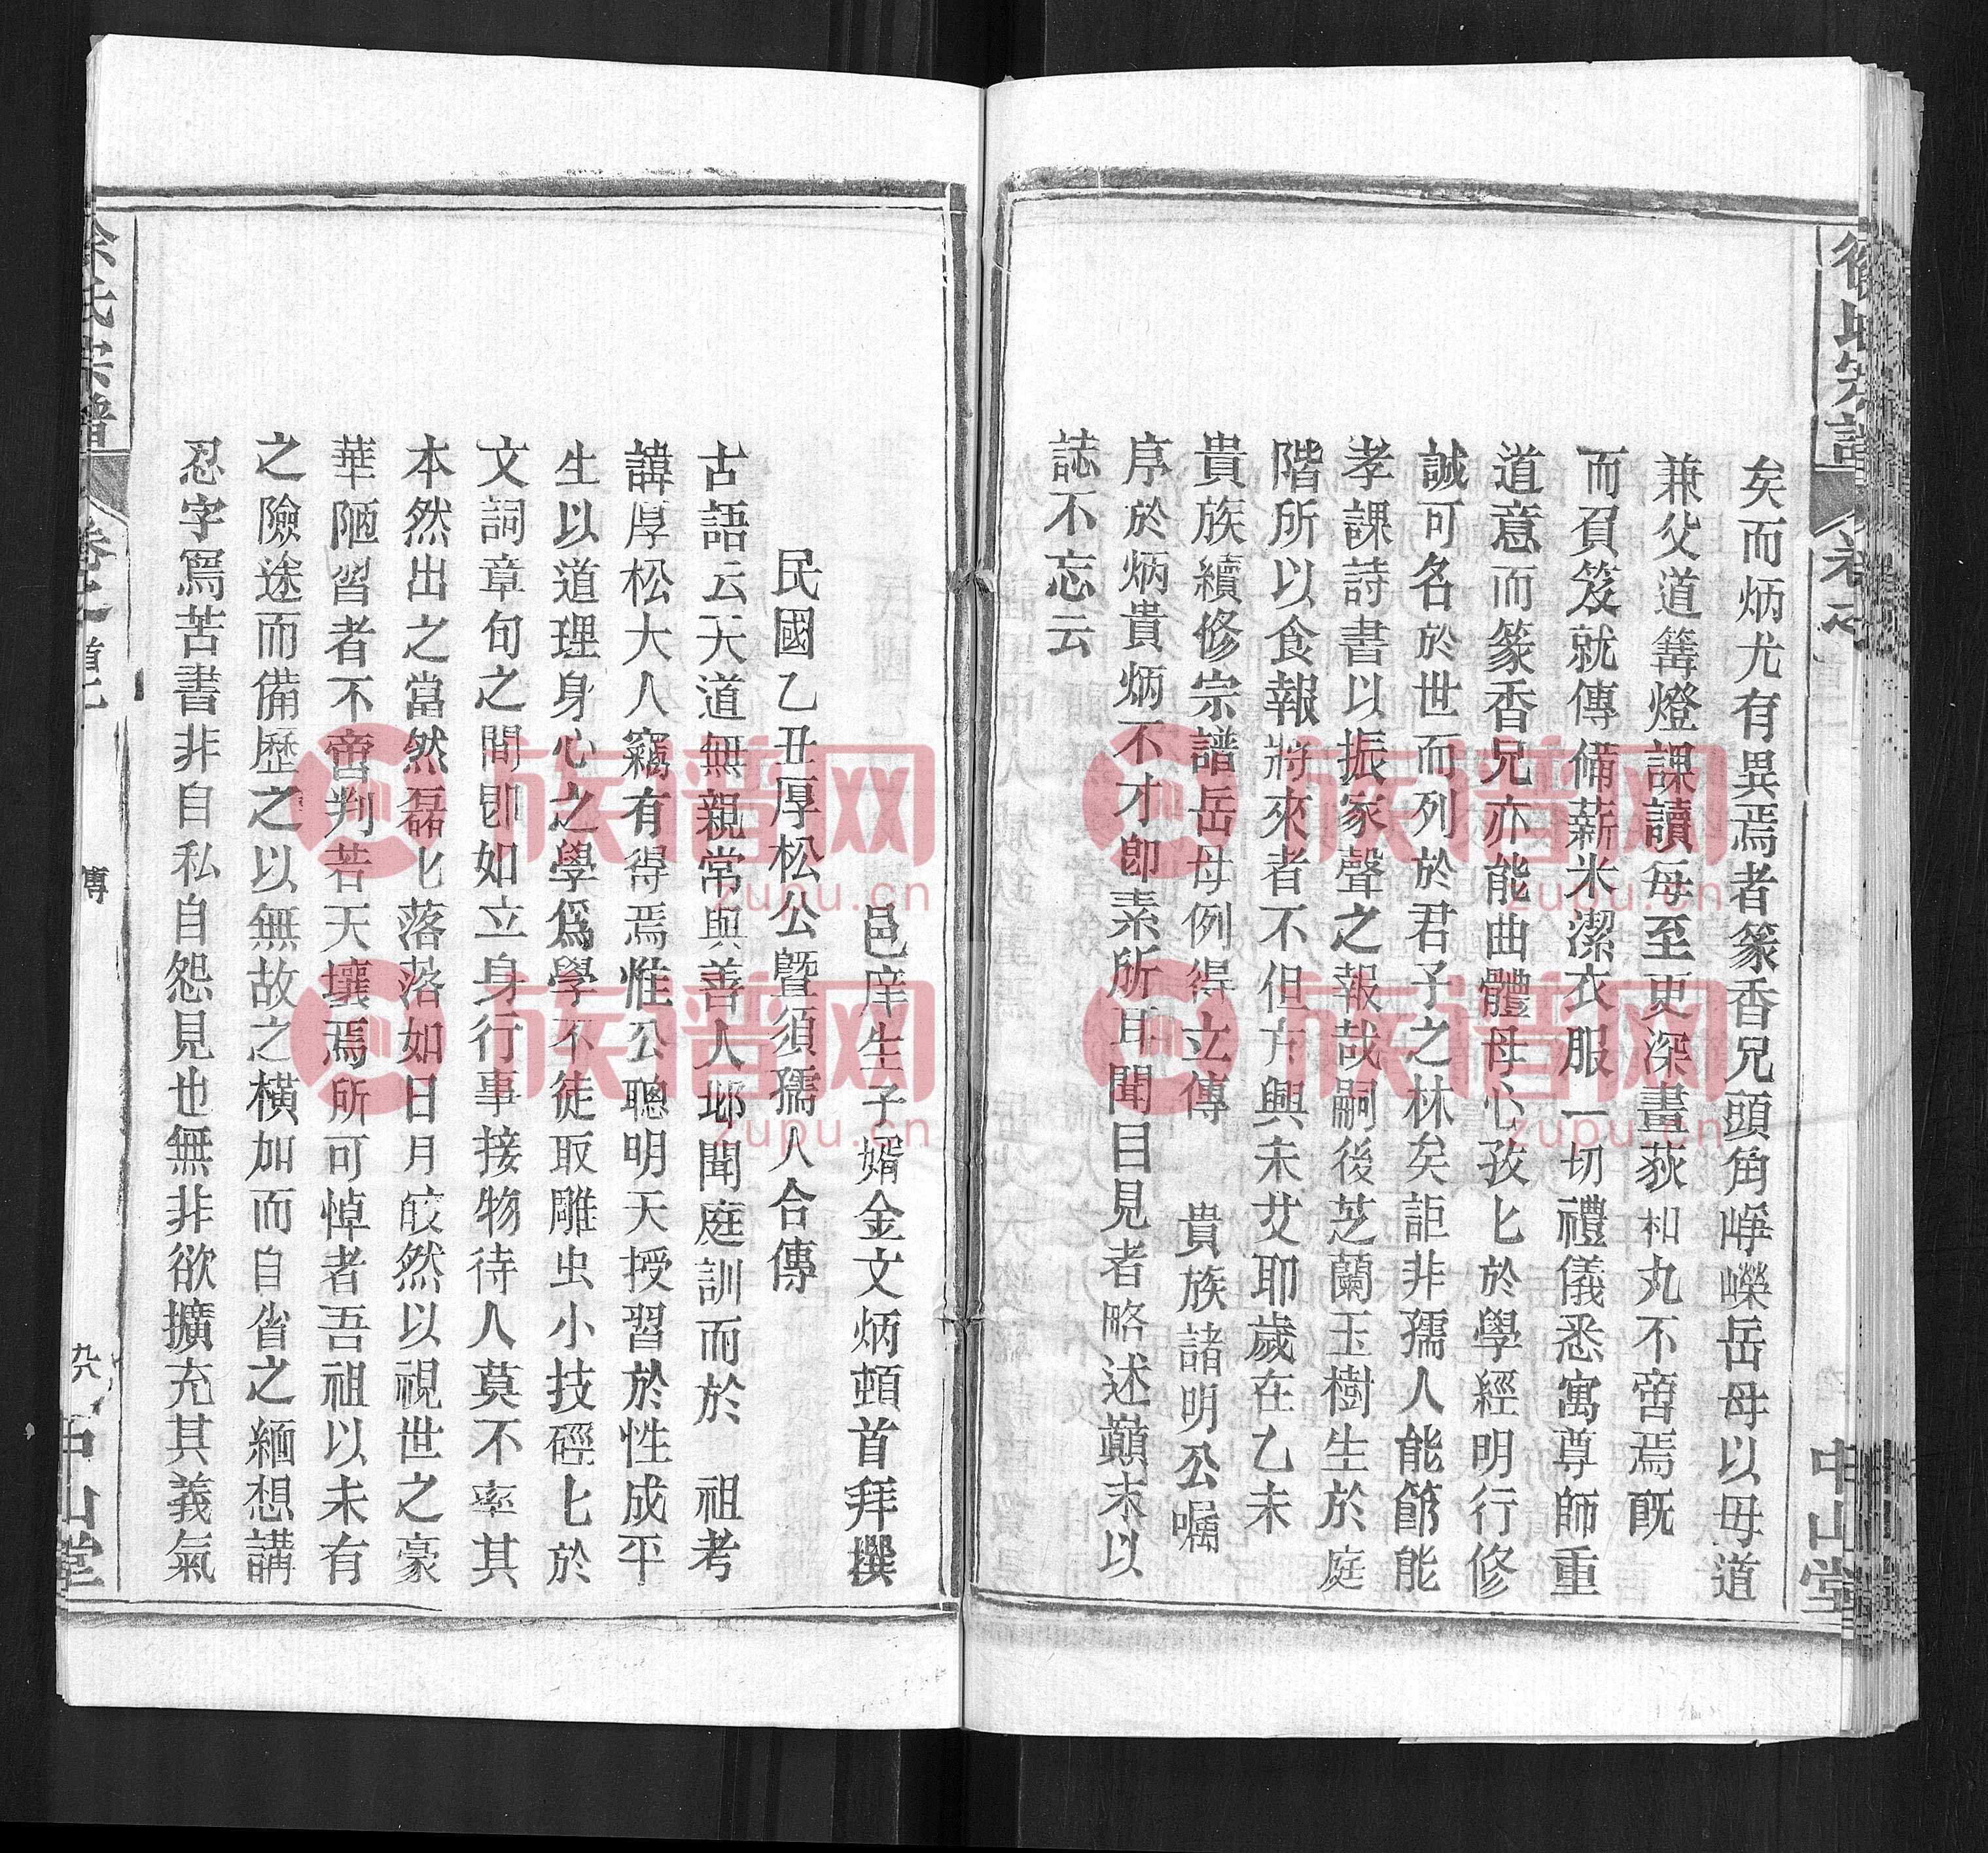 徐氏宗譜
卷之首
中山堂
矣而炳尤有異焉者篆香兄頭角崢嶸岳母以母道
兼父道篝燈課讀每至更深畫荻和丸不啻焉旣
而負笈就傳備薪米潔衣服一切禮儀悉寓尊師重
道意而篆香兄亦能曲體母心孜匕於學經明行修
誠可名於世而列於君子之林矣詎非孺人能節能
孝課詩書以振家聲之報哉嗣後芝蘭玉樹生於庭
階所以食報將來者不但方興未艾耶歲在乙未
貴族續修宗譜岳母例得立傳 貴族諸明公囑
序於炳貴炳不才卽素所耳聞目見者略述巔末以
誌不忘云
邑庠生子婿金文炳頓首拜撰
民國乙丑厚松公曁須孺人合傳
古語云天道無親常與善人耶聞庭訓而於 祖考
諱厚松大人竊有得焉惟公聰明天授習於性成平
生以道理身心之學爲學不徒取雕虫小技硜匕於
文詞章句之間卽如立身行事接物待人莫不率其
本然出之當然磊匕落落如日月皎然以視世之豪
華陋習者不啻判若天壤焉所可悼者吾祖以未有
之險途而備歷之以無故之橫加而自省之緬想講
忍字爲苦書非自私自怨見也無非欲擴充其義氣
徐氏宗譜
卷之首
傳
中山堂
族谱网
zupu.cn
族谱网
zupu.cn
族谱网
zupu.cn
族谱网
zupu.cn